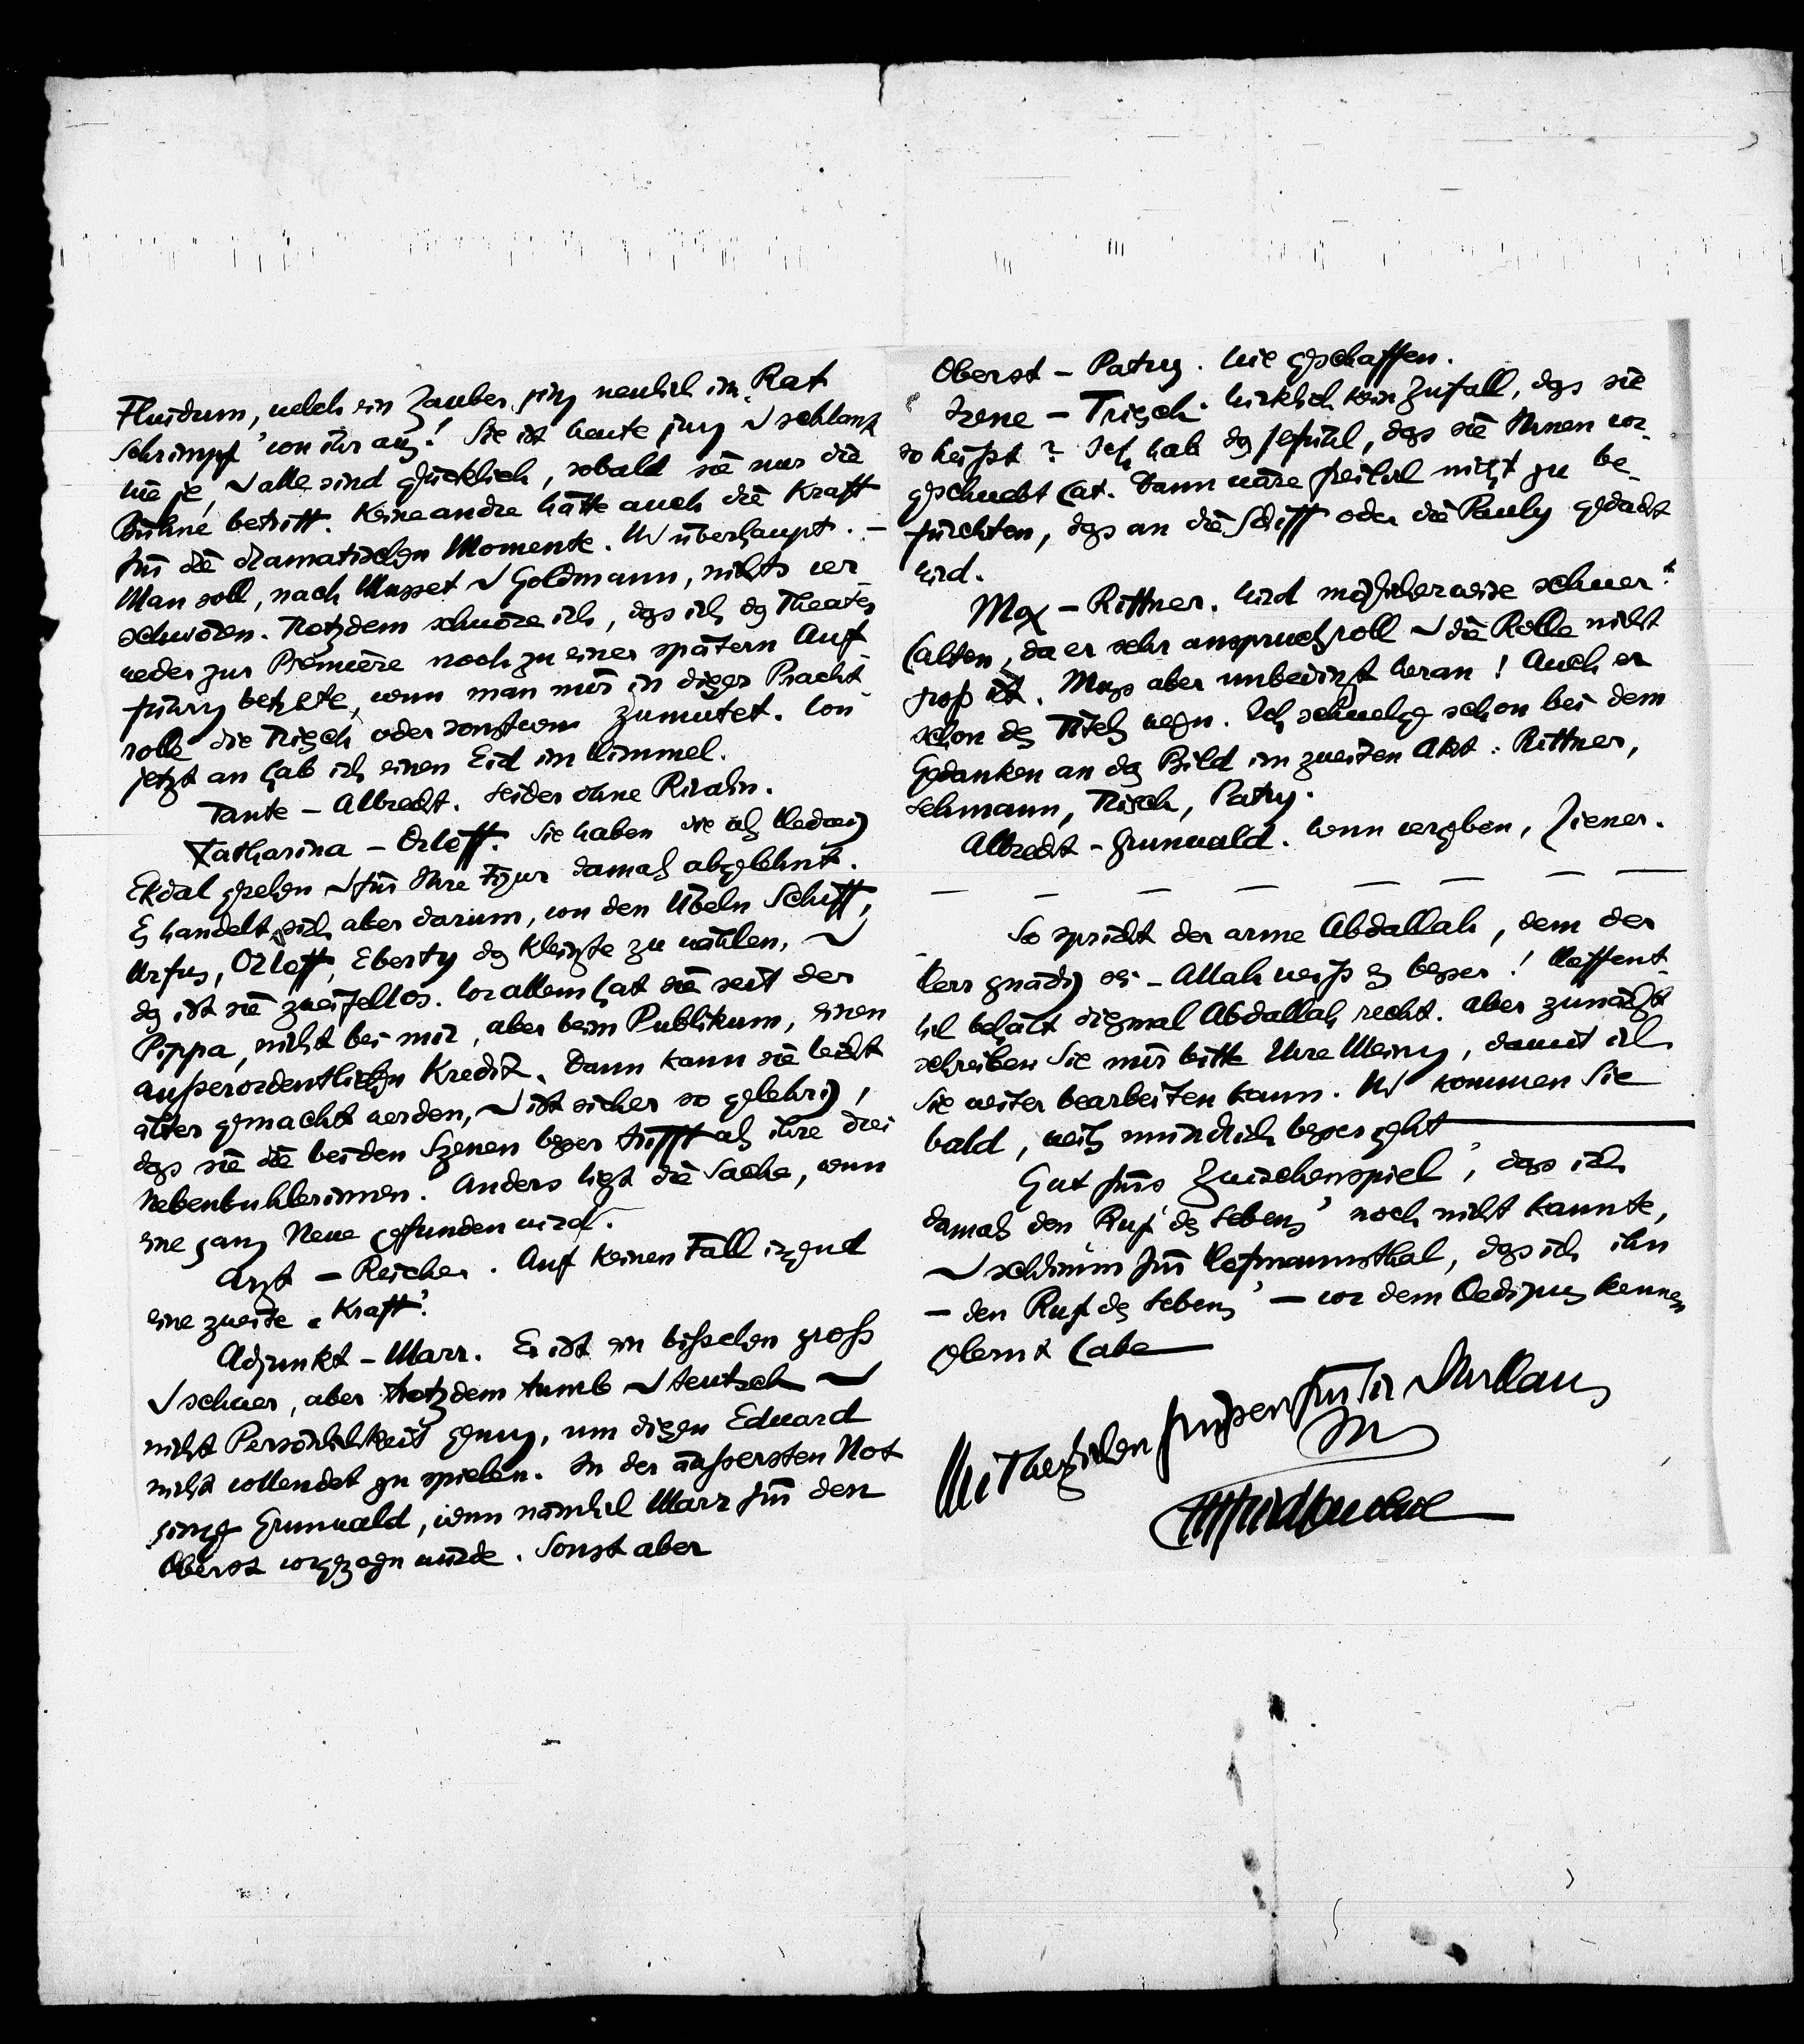 Fluidum, welch ein Zauber ging neulich im „Rat
Schrimpf' von ihr aus! Sie ist heute jung u schlank
wie je, u alle sind glücklich, sobald sie nur die
Bühne betritt. Keine andre hätte auch die Kraft
für die dramatischen Momente. Und überhaupt. –
Man soll, nach Musset u Goldmann, nichts ver-
schwören. Trotzdem schwöre ich, dass ich das Theater
weder zur Première noch zu einer spätern Auf-
führung betrete, wenn man mir in dieser Pracht-
rolle die Triesch oder sonstwen zumutet. Von
jetzt an hab ich einen Eid im Himmel.
Tante – Albrecht. Leider ohne Rivalin.
Katharina – Orloff. Sie haben sie als Hedwig
Ekdal gesehen u für Ihre Figur damals abgelehnt.
Es handelt sich aber darum, von den Übeln Schiff,
Arfus, Orloff, Eberty das kleinste zu wählen, u
das ist sie zweifellos. Vor allem hat sie seit der
Pippa, nicht bei mir, aber beim Publikum, einen
außerordentlichen Kredit. Dann kann sie leicht
älter gemacht werden, u ist sicher so gelehrig,
dass sie die beiden Szenen besser trifft als ihre drei
Nebenbuhlerinnen. Anders liegt die Sache, wenn
eine ganz Neue gefunden wird.
Arzt – Reicher. Auf keinen Fall irgend
eine zweite „Kraft'.
Adjunkt – Marr. Er ist ein bißchen groß
u schwer, aber trotzdem tumb u teutsch u
nicht Persönlichkeit genug, um diesen Eduard
nicht vollendet zu spielen. In der äußersten Not
ginge Grunwald, wenn nämlich Marr für den
Oberst vorgezogen würde. Sonst aber
Oberst – Patry. Wie geschaffen.
Irene – Triesch. Wirklich kein Zufall, dass sie
so heißt? Ich hab das Gefühl, dass sie Ihnen vor-
geschwebt hat. Dann wäre freilich nicht zu be-
fürchten, dass an die Schiff oder die Pauly gedacht
wird.
Max – Rittner. Wird möglicherweise schwer
halten, da er sehr anspruchsvoll u die Rolle nicht
groß ist. Muss aber unbedingt heran! Auch er
schon des Titels wegen. Ich schwelge schon bei dem
Gedanken an das Bild im zweiten Akt: Rittner,
Lehmann, Triesch, Patry.
Albrecht – Grunwald. Wenn vergeben, Ziener.
– – – – – – – –
So spricht der arme Abdallah, dem der
Herr gnädig sei – Allah weiß es besser! Hoffent-
lich behält diesmal Abdallah recht. Aber zunächst
schreiben Sie mir bitte Ihre Meinung, damit ich
Sie weiter bearbeiten kann. Und kommen Sie
bald, weils mündlich besser geht
Gut fürs Zwischenspiel', dass ich
damals den „Ruf des Lebens' noch nicht kannte,
u schlimm für Hofmannsthal, dass ich ihn
– den Ruf des Lebens' – vor dem Oedipus kennen
gelernt habe
Mit herzlichen Grüßen für Sie u Ihr Haus
Ihr